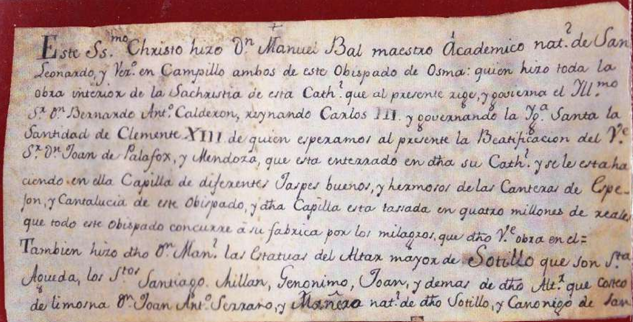 Este Ss.mo Christo hizo Dn Manuel Bal maestro Academico nat.l de San
Leonardo, y Vez.o en Campillo ambos de este Obispado de Osma: quien hizo toda la
obra interior de la Sachristia de esta Cath.l que al presente rige, y govierna el Ill.mo
S.r Dn Bernardo Ant.o Calderon, reynando Carlos III. y governando la Ig.a Santa la
Santidad de Clemente XIII de quien esperamos al presente la Beatificacion del V.e
S.r Dn Joan de Palafox, y Mendoza, que esta enterrado en dha su Cath.l y se le esta ha
ciendo en ella Capilla de diferentes Jaspes buenos, y hermosos de las Canteras de Espe=
jon, y Cantalucia de este Obispado, y dha Capilla esta tassada en quatro millones de reales
que todo este Obispado concurre á su fabrica por los milagros, que dho V.e obra en el=
Tambien hizo dho Dn Man.l las Estatuas del Altar mayor de Sotillo que son S.ta
Agueda, los S.tos Santiago, Millan, Geronimo, Joan, y demas de dho Alt.r que costeo
de limosna Dn Joan Ant.o Serrano, y nat.l de dho Sotillo, y Canonigo de San